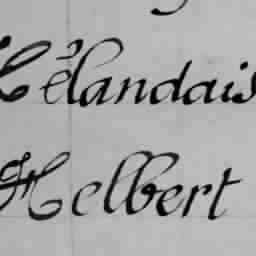 Zélandais
Helbert